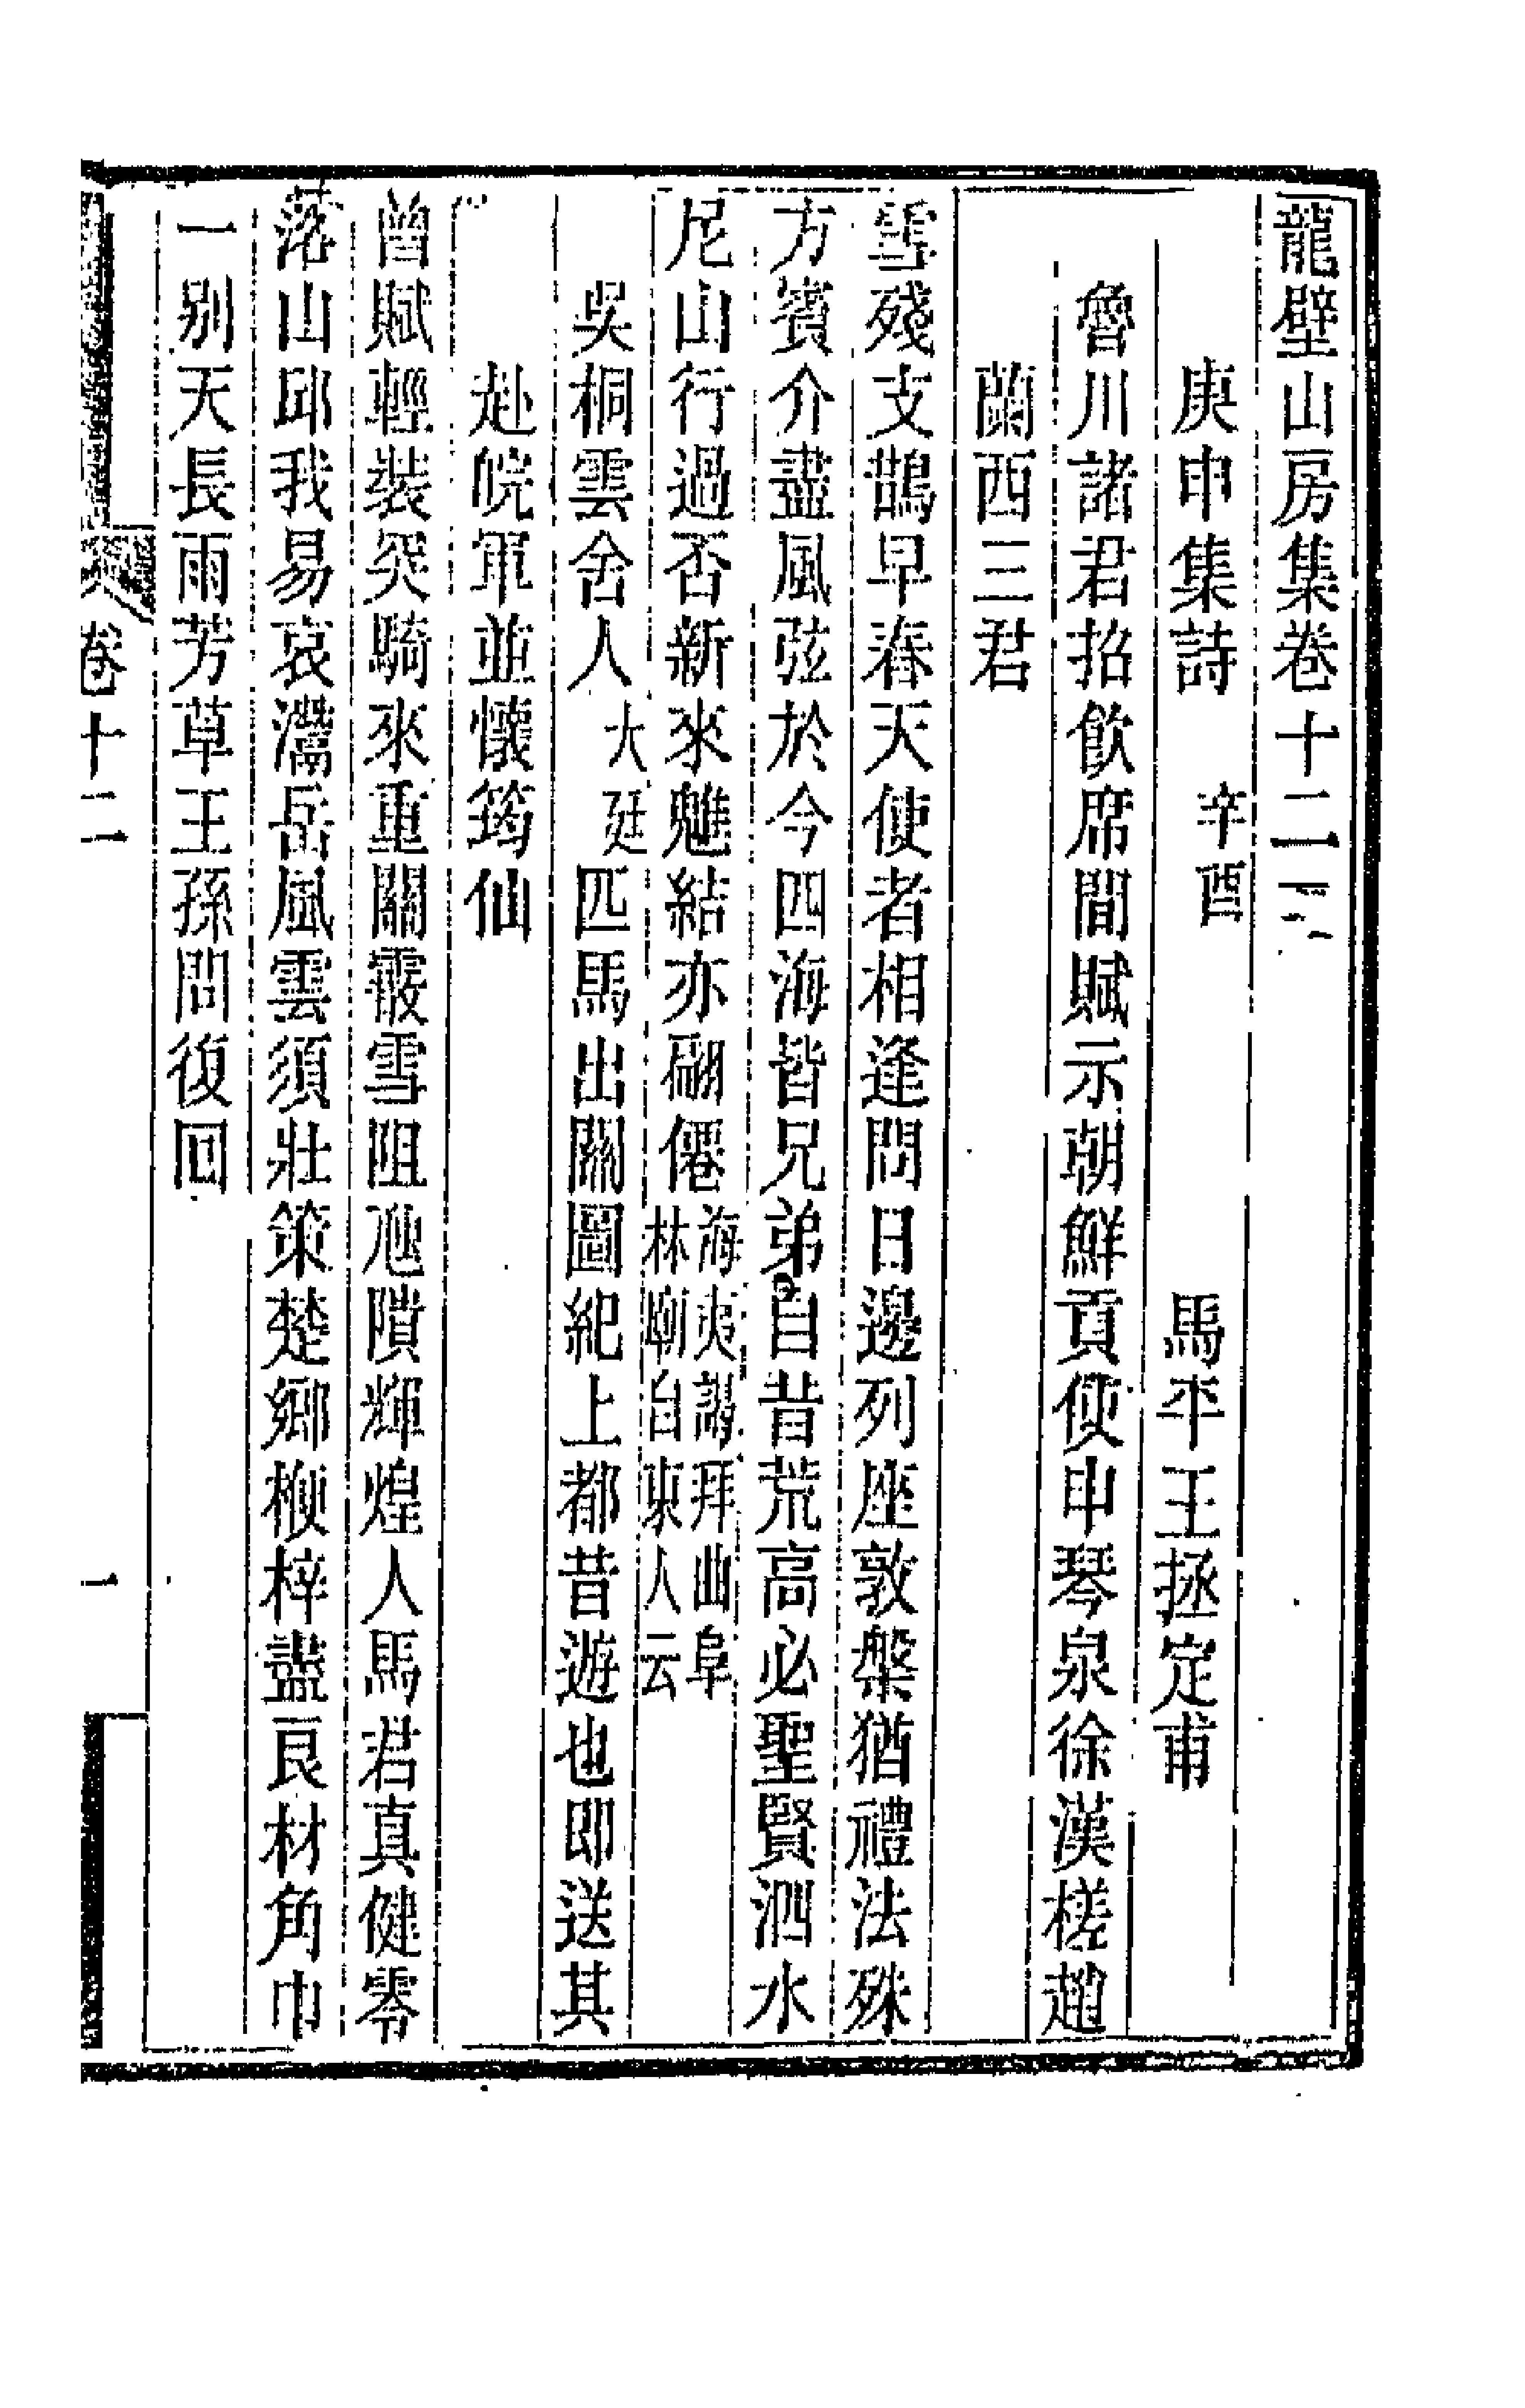 龍壁山房集卷十二
庚申集詩　辛酉　馬平王拯定甫
魯川諸君招飲席間賦示朝鮮貢使申琴泉徐漢槎趙
蘭西三君
雪殘支鵲早春天使者相逢問日邊列座敦槃猶禮法殊
方賓介盡風弦於今四海皆兄弟自昔荒高必聖賢泗水
尼山行過否新來魋結亦翩僊海夷謁拜曲阜林廟自東人云
吳桐雲舍人大廷匹馬出關圖紀上都昔遊也即送其
赴皖軍並懷筠仙
曾賦輕裝突騎來重關霰雪阻虺隤輝煌人馬君真健零
落山邱我易哀灊岳風雲須壯策楚鄉楩梓盡良材角巾
一別天長雨芳草王孫問復回
卷十二
一